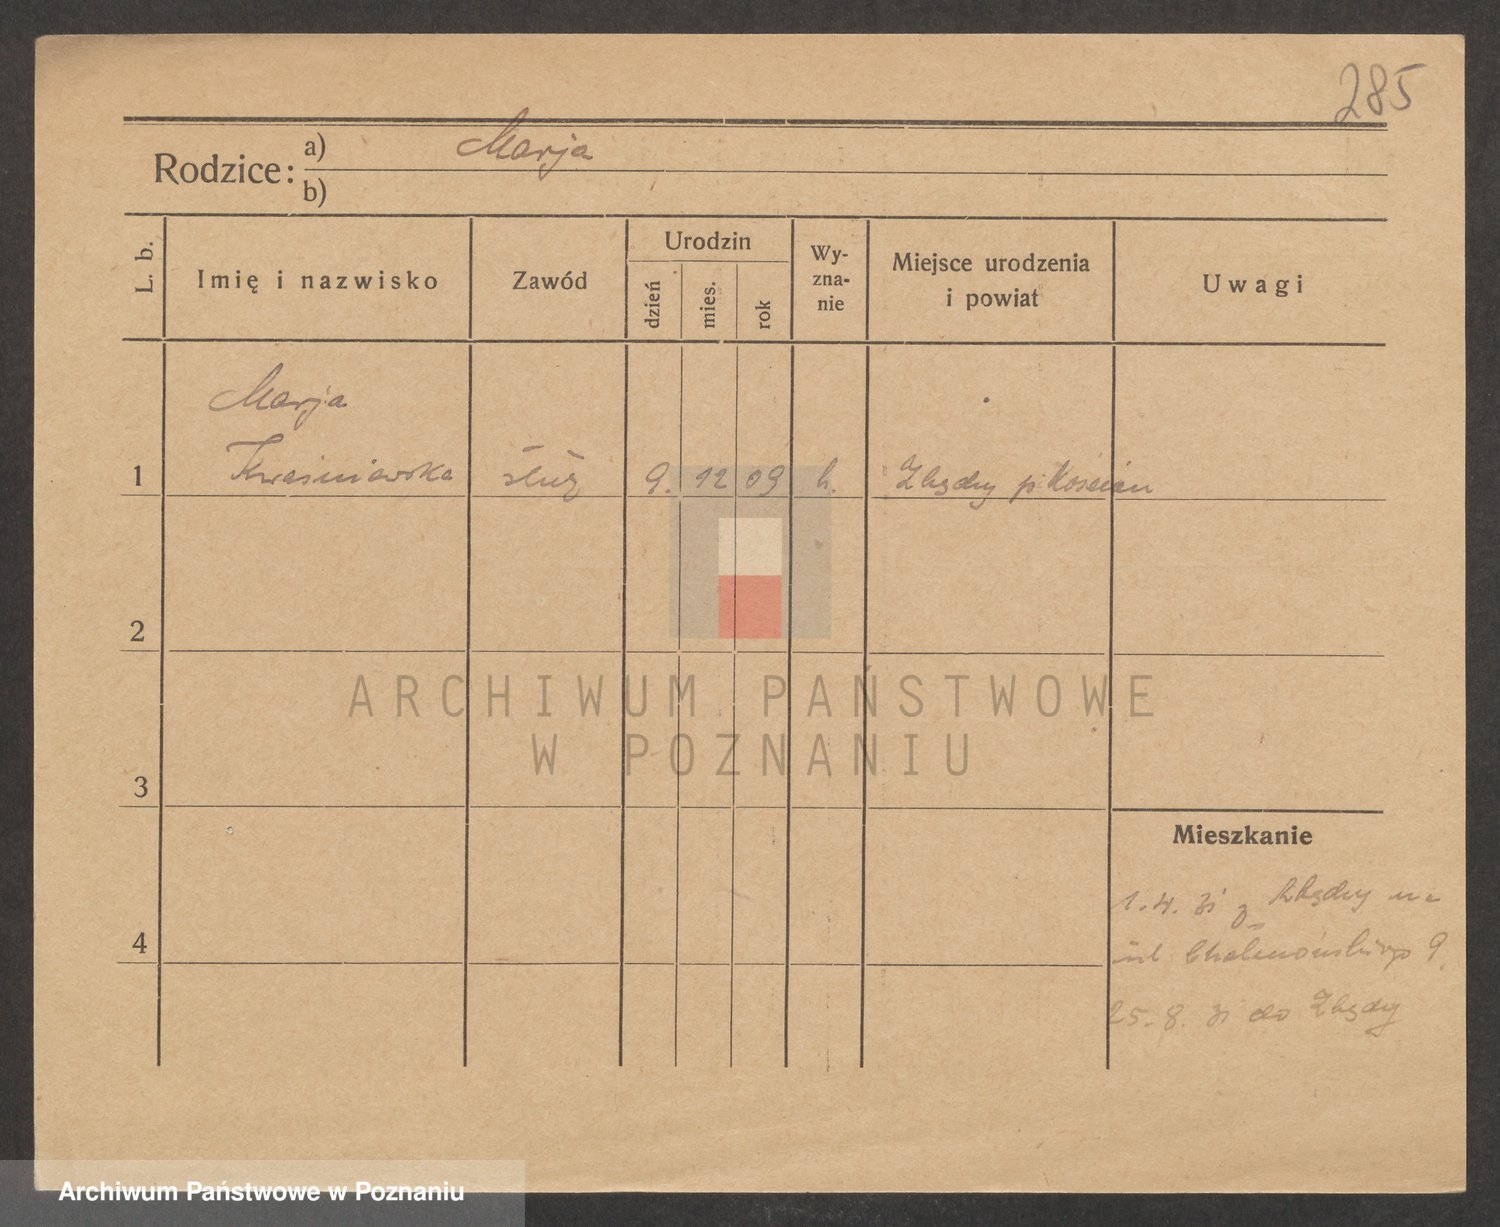 285
Rodzice: a) Marja
b)
L. b.
Imię i nazwisko
Zawód
Urodzin
dzień
mies.
rok
Wy-
zna-
nie
Miejsce urodzenia
i powiat
Uwagi
Marja
1 Kwaśniewska służ 9. 12 09 k. Zbędy p. Kościan
2
3
4
Mieszkanie
1. 4. 31 z Zbędy na
ul 9.
25. 8. 31 do Zbędy
ARCHIWUM PAŃSTWOWE
W POZNANIU
Archiwum Państwowe w Poznaniu